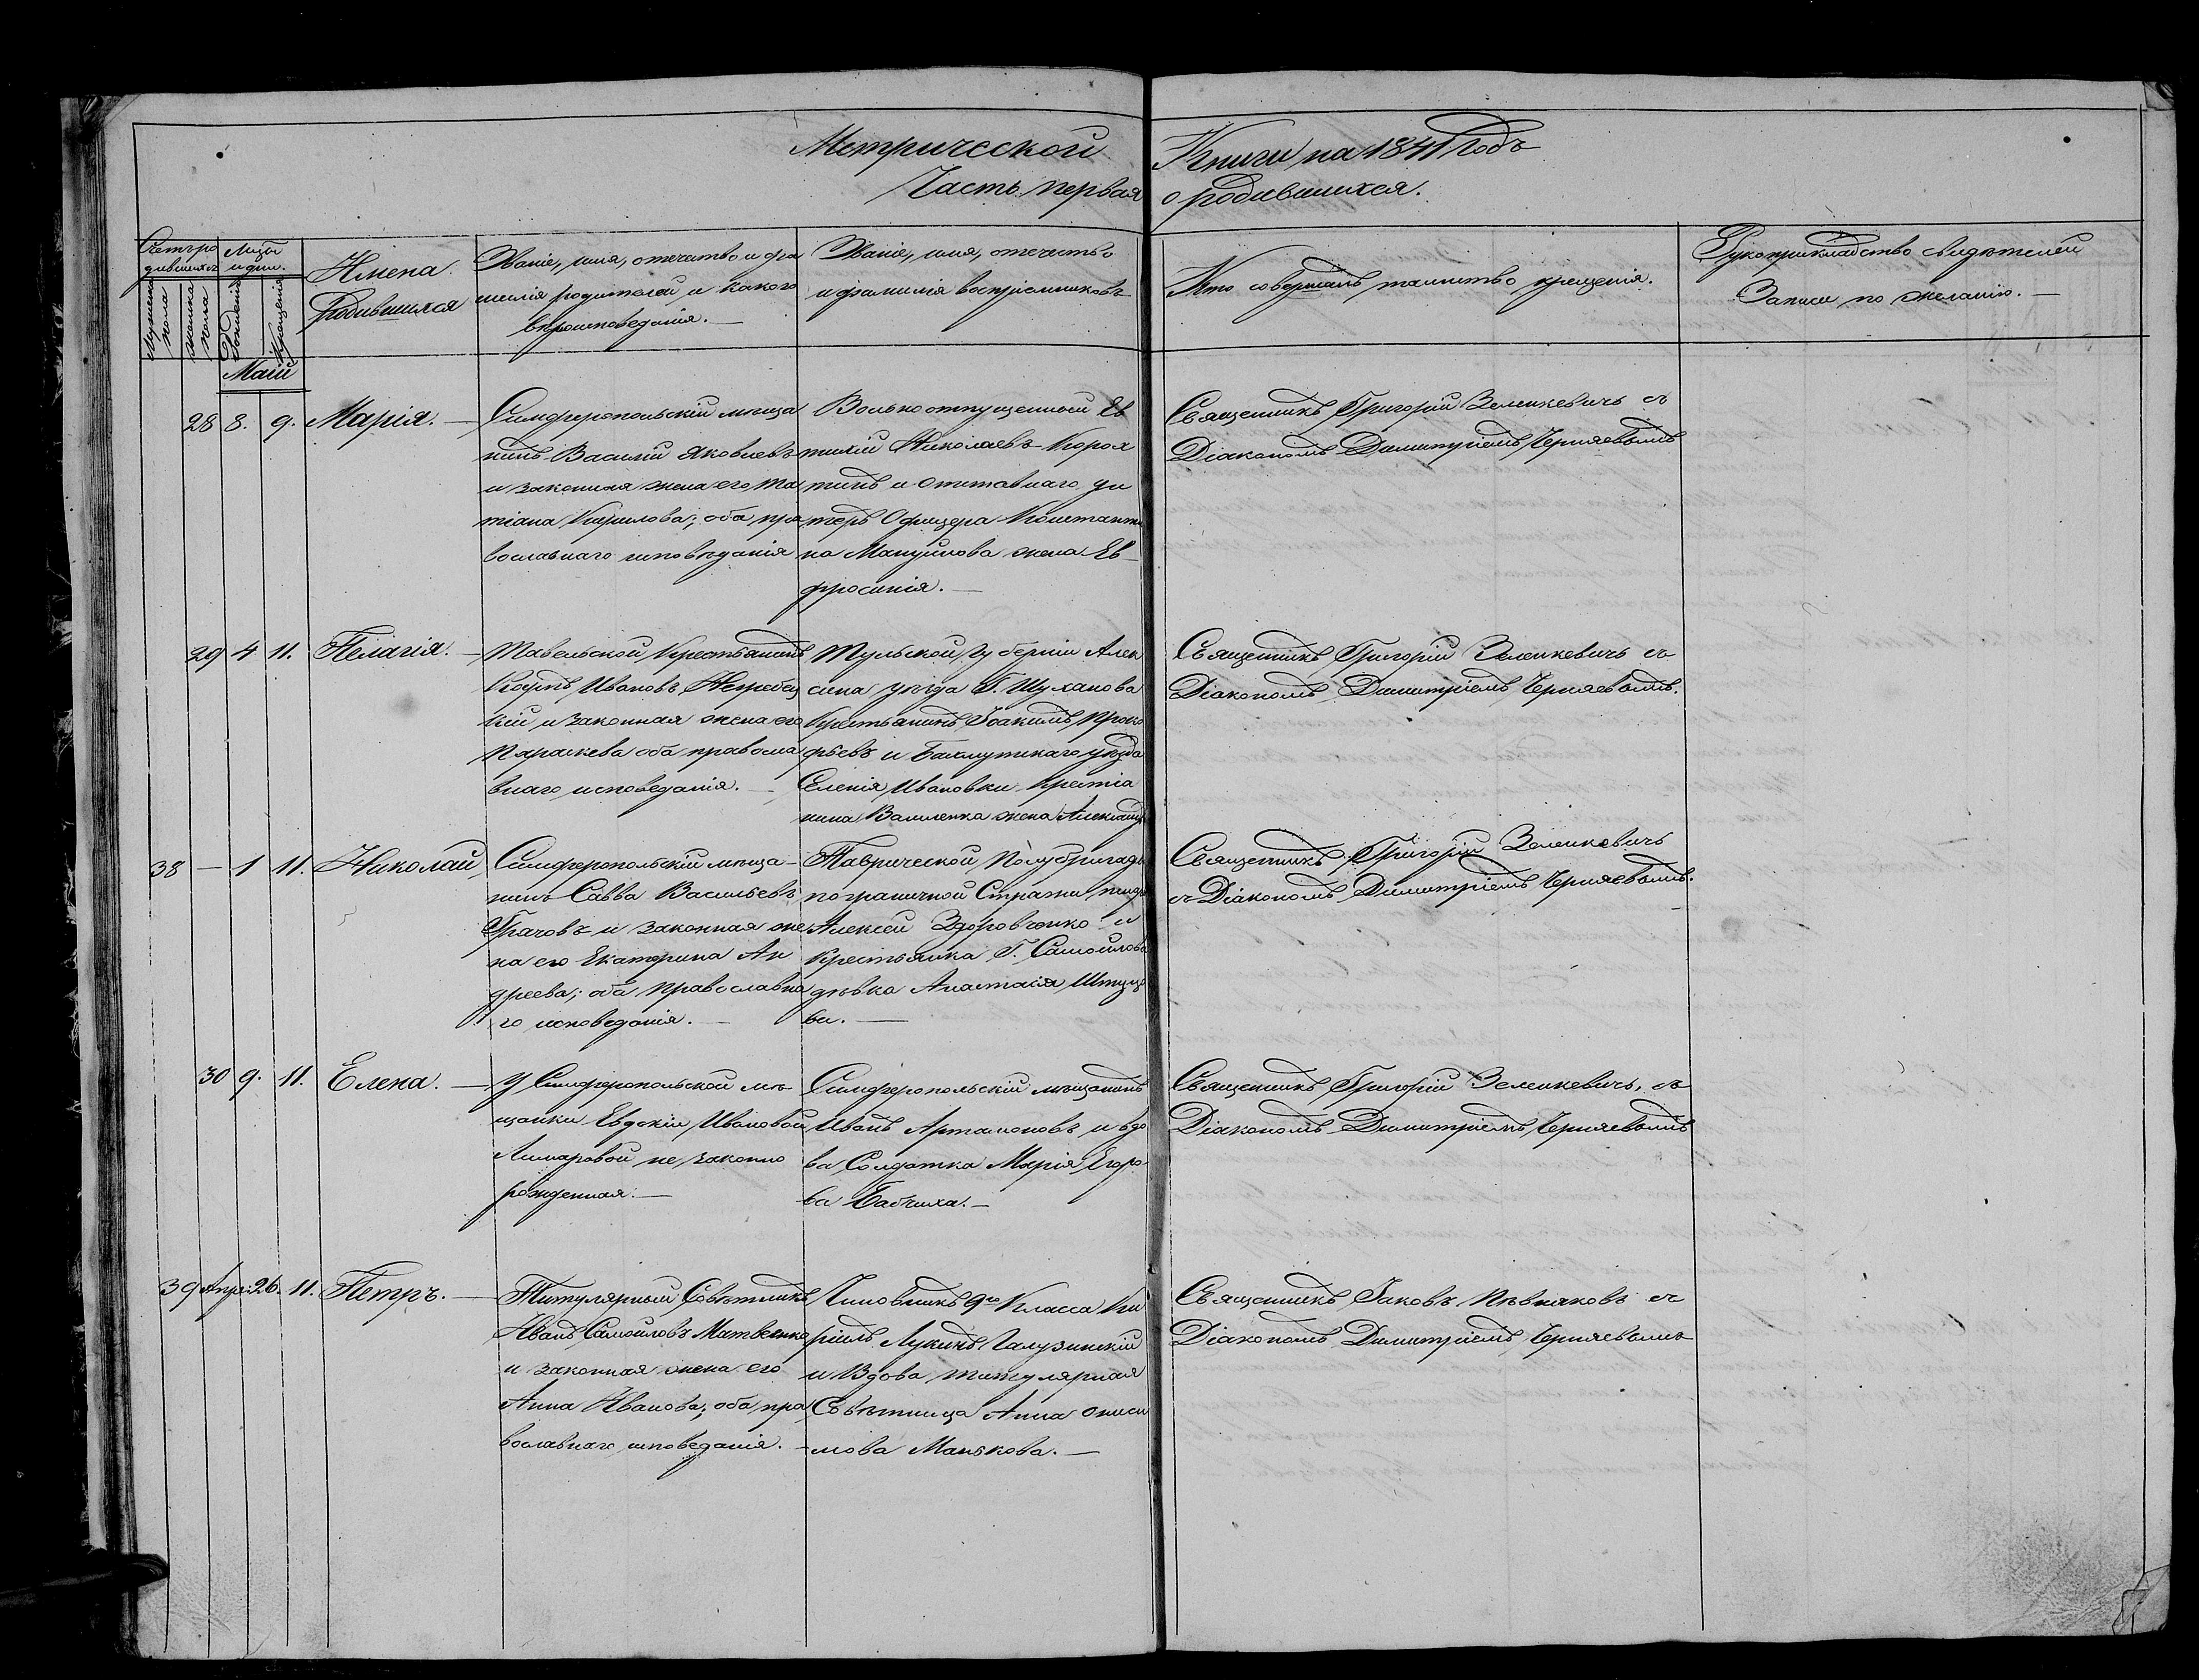 Метрической Книги на 1841 Годъ
Часть первая о родившихся.
Счетъ ро
дившихся
Мужеска
пола
женска
пола
Мѣсяцъ
и дни.
Рожденія
Крещенія
Имена
Родившихся
Званіе, имя, отчество и фа
милія родителей, и какого
вѣроисповеданія. —
Званіе, имя, отчество
и фамилія воспріемниковъ
Кто совершалъ таинство крещенія.
Рукоприкладство свидѣтелей
Записи по желанію. —
Маій
28 8. 9. Марія. —
Симферопольскій мѣща
нинъ Василій Яковлевъ
и законная жена его Та
тіана Кирилова; оба пра
вославнаго исповѣданія
Вольноотпущенный Ев
тихій Николаевъ Корол
и Отставнаго ун
теръ Офицера Константи
на Мануйлова жена Ев
фросинія. —
Священникъ Григорій Зеленкевичъ съ
Діакономъ Димитріемъ Черняевымъ
29 4 11. Пелагія. —
Тавельской Крестьянинъ
Карпъ Ивановъ
кій и законная жена его
Параскева оба правосла
внаго исповеданія. —
Тульской губерніи Алек
сина уѣзда Г. Шуханова
Крестьянинъ Іоакимъ Проко
фьевъ и Бахмутскаго уѣзда
Селенія Ивановки Крестіа
нина Василенка жена Александра
Священникъ Григорій Зеленкевичъ съ
Діакономъ Димитріемъ Черняевымъ.
38 — 1 11. Николай
Симферопольскій мѣща-
нинъ Савва Васильевъ
Грачовъ и законная же
на его Екатерина Ан
дреева; оба православна
го исповеданія. —
Таврической Полубригады
пограничной Стражи
Алексей Здоровченко и
Крестьянка Г. Самойлова
дѣвка Анастасія
ва. —
Священникъ Григорій Зеленкевичъ
съ Діакономъ Димитріемъ Черняевымъ.
30 9. 11. Елена. —
У Симферопольской мѣ
щанки Евдокіи Ивановой
Лимаровой не законно
рожденная. —
Симферопольскій мѣщанинъ
Иванъ Артамоновъ и вдо
ва Солдатка Марія Егоро
ва Бабчиха. —
Священникъ Григорій Зеленкевичъ, съ
Діакономъ Димитріемъ Черняевымъ
39 Апр: 26. 11. Петръ. —
Титулярный Совѣтникъ
Иванъ Самойловъ Матвеенко
и законная жена его
Анна Иванова; оба пра
вославнаго исповеданія. —
Чиновникъ 9го Класса Ки
рилъ Лукинъ Галузинскій
и Вдова титулярная
Совѣтница Анна Ониси
мова Манькова. —
Священникъ Іаковъ Пѣвняковъ съ
Діакономъ Димитріемъ Черняевымъ